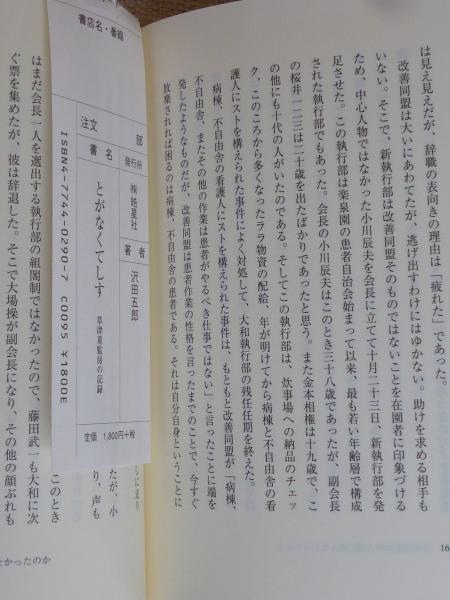 は見え見えだが、辞職の表向きの理由は「疲れた」であった。
改善同盟は大いにあわてたが、逃げ出すわけにはゆかない。助けを求める相手も
いない。そこで、新執行部は改善同盟そのものではないことを在園者に印象づける
ため、中心人物ではなかった小川辰夫を会長に立てて十月二十三日、新執行部を発
足させた。この執行部は楽泉園の患者自治会始まって以来、最も若い年齢層で構成
された執行部でもあった。会長の小川辰夫はこのとき三十八歳であったが、副会長
の桜井一二三は二十歳を出たばかりであったと思う。また金本相権は十九歳で、こ
の他にも十代の人がいたのである。そしてこの執行部は、炊事場への納品のチェッ
ク、このころから多くなったララ物資の配給、年が明けてから病棟と不自由舎の看
護人にストを構えられた事件によく対処して、大和執行部の残任任期を終えた。
病棟、不自由舎の看護人にストを構えられた事件は、もともと改善同盟が「病棟、
不自由舎、またその他の作業は患者がやるべき仕事ではない」と言ったことに端を
発したようなものだが、改善同盟は患者作業の性格を言ったまでのことで、今すぐ
放棄されれば困るのは病棟、不自由舎の患者である。それは自分自身ということに
書店名・番線
注文
部
書名
発行所
㈱皓星社
著者
沢田五郎
とがなくてしす
草津重監房の記録
定価 1,800円+税
ISBN4-7744-0290-7 C0095 ¥1800E
たが、小
り、声も
このとき
はまだ会長一人を選出する執行部の組閣制ではなかったので、藤田武一も大和に次
ぐ票を集めたが、彼は辞退した。そこで大場操が副会長になり、その他の顔ぶれも
16
なかったのか